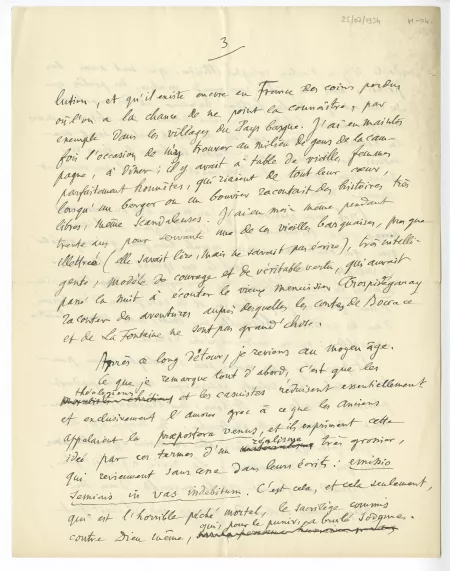 25/02/1934
M-94.
3
lution, et qu'il existe encore en France des coins perdus
où l'on a la chance de ne point la connaître, par
exemple dans les villages du Pays basque. J'ai eu maintes
fois l'occasion de me trouver au milieu de gens de la cam-
pagne, à dîner ; il y avait à table de vieilles femmes
parfaitement honnêtes, qui riaient de tout leur cœur,
lorsqu'un berger ou un bouvier racontait des histoires très
libres, même scandaleuses. J'ai eu moi-même pendant
trente ans pour servante une de ces vieilles basquaises, presque
illettrée (elle savait lire, mais ne savait pas écrire), très intelli-
gente, modèle de courage et de véritable vertu, qui aurait
passé la nuit à écouter le vieux menuisier Orospidegaray
raconter des aventures auprès desquelles les contes de Boccace
et de La Fontaine ne sont pas grand'chose.
Après ce long détour, je reviens au moyen âge.
Ce que je remarque tout d'abord, c'est que les
théologiens
et les casuistes réduisent essentiellement
et exclusivement l'amour grec à ce que les Anciens
appelaient la præpostera venus, et ils expriment cette
idée par ces termes d'un réalisme très grossier,
qui reviennent sans cesse dans leurs écrits : emissio
seminis in vas indebitum. C'est cela, et cela seulement,
qui est l'horrible péché mortel, le sacrilège commis
contre Dieu même, qui, pour le punir, a brûlé Sodome.